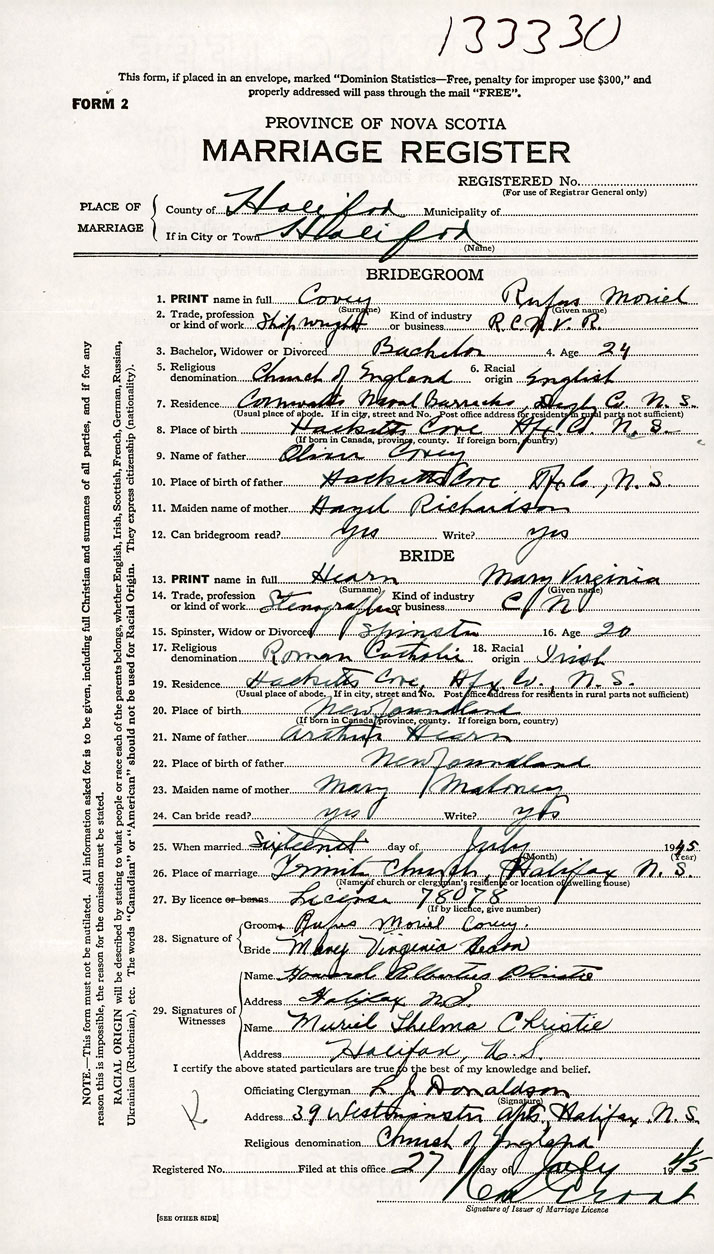 133330
This form, if placed in an envelope, marked “Dominion Statistics—Free, penalty for improper use $300,” and
properly addressed will pass through the mail “FREE”.
FORM 2
PROVINCE OF NOVA SCOTIA
MARRIAGE REGISTER
REGISTERED No.
(For use of Registrar General only)
PLACE OF MARRIAGE
County of Halifax Municipality of
If in City or Town Halifax
(Name)
BRIDEGROOM
1. PRINT name in full Covey Rufus Moriel
(Surname) (Given name)
2. Trade, profession or kind of work Shipwright Kind of industry or business R.C.N.V.R.
3. Bachelor, Widower or Divorced Bachelor 4. Age 24
5. Religious denomination Church of England 6. Racial origin English
7. Residence Cornwallis Naval Barracks, Digby Co. N.S.
(Usual place of abode. If in city, street and No. Post office address for residents in rural parts not sufficient)
8. Place of birth Hacketts Cove Hfx. Co. N.S.
(If born in Canada, province, county. If foreign born, country)
9. Name of father Oliver Covey
10. Place of birth of father Hacketts Cove Hfx Co., N.S.
11. Maiden name of mother Hazel Richardson
12. Can bridegroom read? yes Write? yes
BRIDE
13. PRINT name in full Hearn Mary Virginia
(Surname) (Given name)
14. Trade, profession or kind of work Stenographer Kind of industry or business C N
15. Spinster, Widow or Divorced Spinster 16. Age 20
17. Religious denomination Roman Catholic 18. Racial origin Irish
19. Residence Hacketts Cove, Hfx Co., N.S.
(Usual place of abode. If in city, street and No. Post office address for residents in rural parts not sufficient)
20. Place of birth Newfoundland
(If born in Canada, province, county. If foreign born, country)
21. Name of father Arthur Hearn
22. Place of birth of father Newfoundland
23. Maiden name of mother Mary Maloney
24. Can bride read? yes Write? yes
25. When married Sixteenth day of July 1945
(Month) (Year)
26. Place of marriage Trinity Church, Halifax N.S.
(Name of church or clergyman's residence or location of dwelling house)
27. By licence or banns License 78078
(If by licence, give number)
28. Signature of
Groom Rufus Moriel Covey.
Bride Mary Virginia Hearn
29. Signatures of Witnesses
Name Howard Albertus Christie
Address Halifax N.S.
Name Muriel Thelma Christie
Address Halifax, N.S.
I certify the above stated particulars are true to the best of my knowledge and belief.
Officiating Clergyman L. J. Donaldson
(Signature)
Address 39 Westminster Apts, Halifax, N.S.
Religious denomination Church of England
Registered No. Filed at this office 27 day of July 1945
Signature of Issuer of Marriage Licence
[SEE OTHER SIDE]
NOTE.—This form must not be mutilated. All information asked for is to be given, including full Christian and surnames of all parties, and if for any
reason this is impossible, the reason for the omission must be stated.
RACIAL ORIGIN will be described by stating to what people or race each of the parents belongs, whether English, Irish, Scottish, French, German, Russian,
Ukrainian (Ruthenian), etc. The words “Canadian” or “American” should not be used for Racial Origin. They express citizenship (nationality).